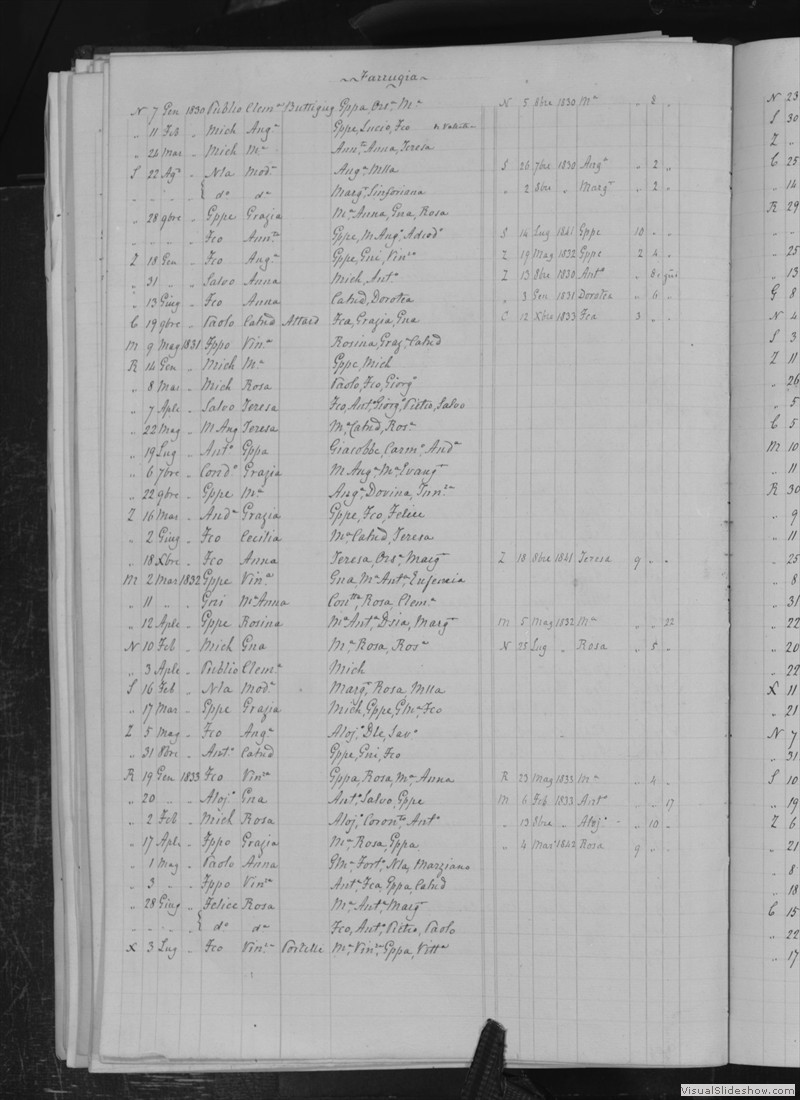 Farrugia
N 7 Gen 1830 Publio Clem.a Buttigieg Gppa, Ors.a M.a N 5 8bre 1830 M.a „ 2 „
„ 11 Feb „ Mich Ang.a Gppe, Lucio, Fco
„ 24 Mar „ Mich M.a Ann.ta Anna, Teresa
S 22 Ag.o „ Nla Mod.a Ang.a Mlla S 26 7bre 1830 Ang.a „ 2 „
„ „ „ „ { d.o d.a Marg.ta Sinforiana „ 2 8bre „ Marg.ta „ 2 „
„ 28 9bre „ Gppe Grazia M.a Anna, Gna, Rosa
„ „ „ „ Fco Ann.ta Gppe, M Ang.o Adeod.o S 14 Lug 1841 Gppe 10 „ „
Z 18 Gen „ Fco Ang.a Gppe, Gni, Vin.zo Z 19 Mag 1832 Gppe 2 4 „
„ 31 „ „ Salvo Anna Mich, Ant.o Z 13 8bre 1830 Ant.o „ 8
„ 13 Giug „ Fco Anna Catnd, Dorotea „ 3 Gen 1831 Dorotea „ 6 „
C 19 9bre „ Paolo Catnd Attard Fca, Grazia, Gna C 12 Xbre 1833 Fca 3 „ „
M 9 Mag 1831 Fppo Vin.a Rosina, Graz.a Catnd
R 14 Gen „ Mich M.a Gppe, Mich
„ 8 Mar „ Mich Rosa Paolo, Fco, Giorg.o
„ 7 Aple „ Salvo Teresa Fco, Ant.o Giorg.o Pietro, Salvo
„ 22 Mag „ M Ang Teresa M.a Catnd, Ros.a
„ 19 Lug „ Ant.o Gppa Giacobbe, Carm.o And.a
„ 6 7bre „ Cond.o Grazia M Ang.a M.a Evang.ta
„ 22 9bre „ Gppe M.a Ang.a Dovina, Inn.za
Z 16 Mar „ And.a Grazia Gppe, Fco, Felice
„ 2 Giug „ Fco Cecilia M.a Catnd, Teresa
„ 18 Xbre „ Fco Anna Teresa, Ors.a Marg.ta Z 18 8bre 1841 Teresa 9 „ „
M 2 Mar 1832 Gppe Vin.a Gna, M.a Ant.a Eufemia
„ 11 „ „ Gni M.a Anna Con.tta Rosa, Clem.a
„ 12 Aple „ Gppe Rosina M.a Ant.a Dsia, Marg.ta M 5 Mag 1832 M.a „ „ 22
N 10 Feb „ Mich Gna M.a Rosa, Ros.a N 25 Lug „ Rosa „ 5 „
„ 3 Aple „ Publio Clem.a Mich
S 16 Feb „ Nla Mod.a Marg.ta Rosa, Mlla
„ 17 Mar „ Gppe Grazia Mich, Gppe, GM.a Fco
Z 5 Mag „ Fco Ang.a Aloj.o Dle, Sav.o
„ 31 8bre „ Ant.o Catnd Gppe, Gni, Fco
R 19 Gen 1833 Fco Vin.za Gppa, Rosa, M.a Anna R 23 Mag 1833 M.a „ 4 „
„ 20 „ „ Aloj.o Gna Ant.o Salvo, Gppe M 6 Feb 1833 Ant.o „ „ 17
„ 2 Feb „ Mich Rosa Aloj.o Coron.to Ant.o „ 13 8bre „ Aloj.o „ 10 „
„ 17 Aple „ Fppo Grazia M.a Rosa, Gppa „ 4 Mar 1842 Rosa 9 „ „
„ 1 Mag „ Paolo Anna GM.a Fort.o Nla, Marziano
„ 3 „ „ Fppo Vin.za Ant.a Fca, Gppa, Catnd
„ 28 Giug „ Felice Rosa M.a Ant.a Marg.ta
„ „ „ „ { d.o d.a Fco, Ant.o Pietro, Paolo
X 3 Lug „ Fco Vin.za Portelli M.a Vin.za Gppa, Vitt.a
N 23
S 30
Z „
C 25
„ 14
R 29
„ 25
„ 13
G 8
N 4
S 3
Z 11
„ 26
„ 5
C 5
M 10
„ 11
R 30
„ 9
„ 11
„ 25
„ 8
„ 31
„ 22
„ 20
„ 22
X 11
„ 21
N 7
„ 31
S 10
„ 19
Z 6
„ 21
„ 8
„ 18
C 15
„ 22
„ 17
VisualSlideshow.com